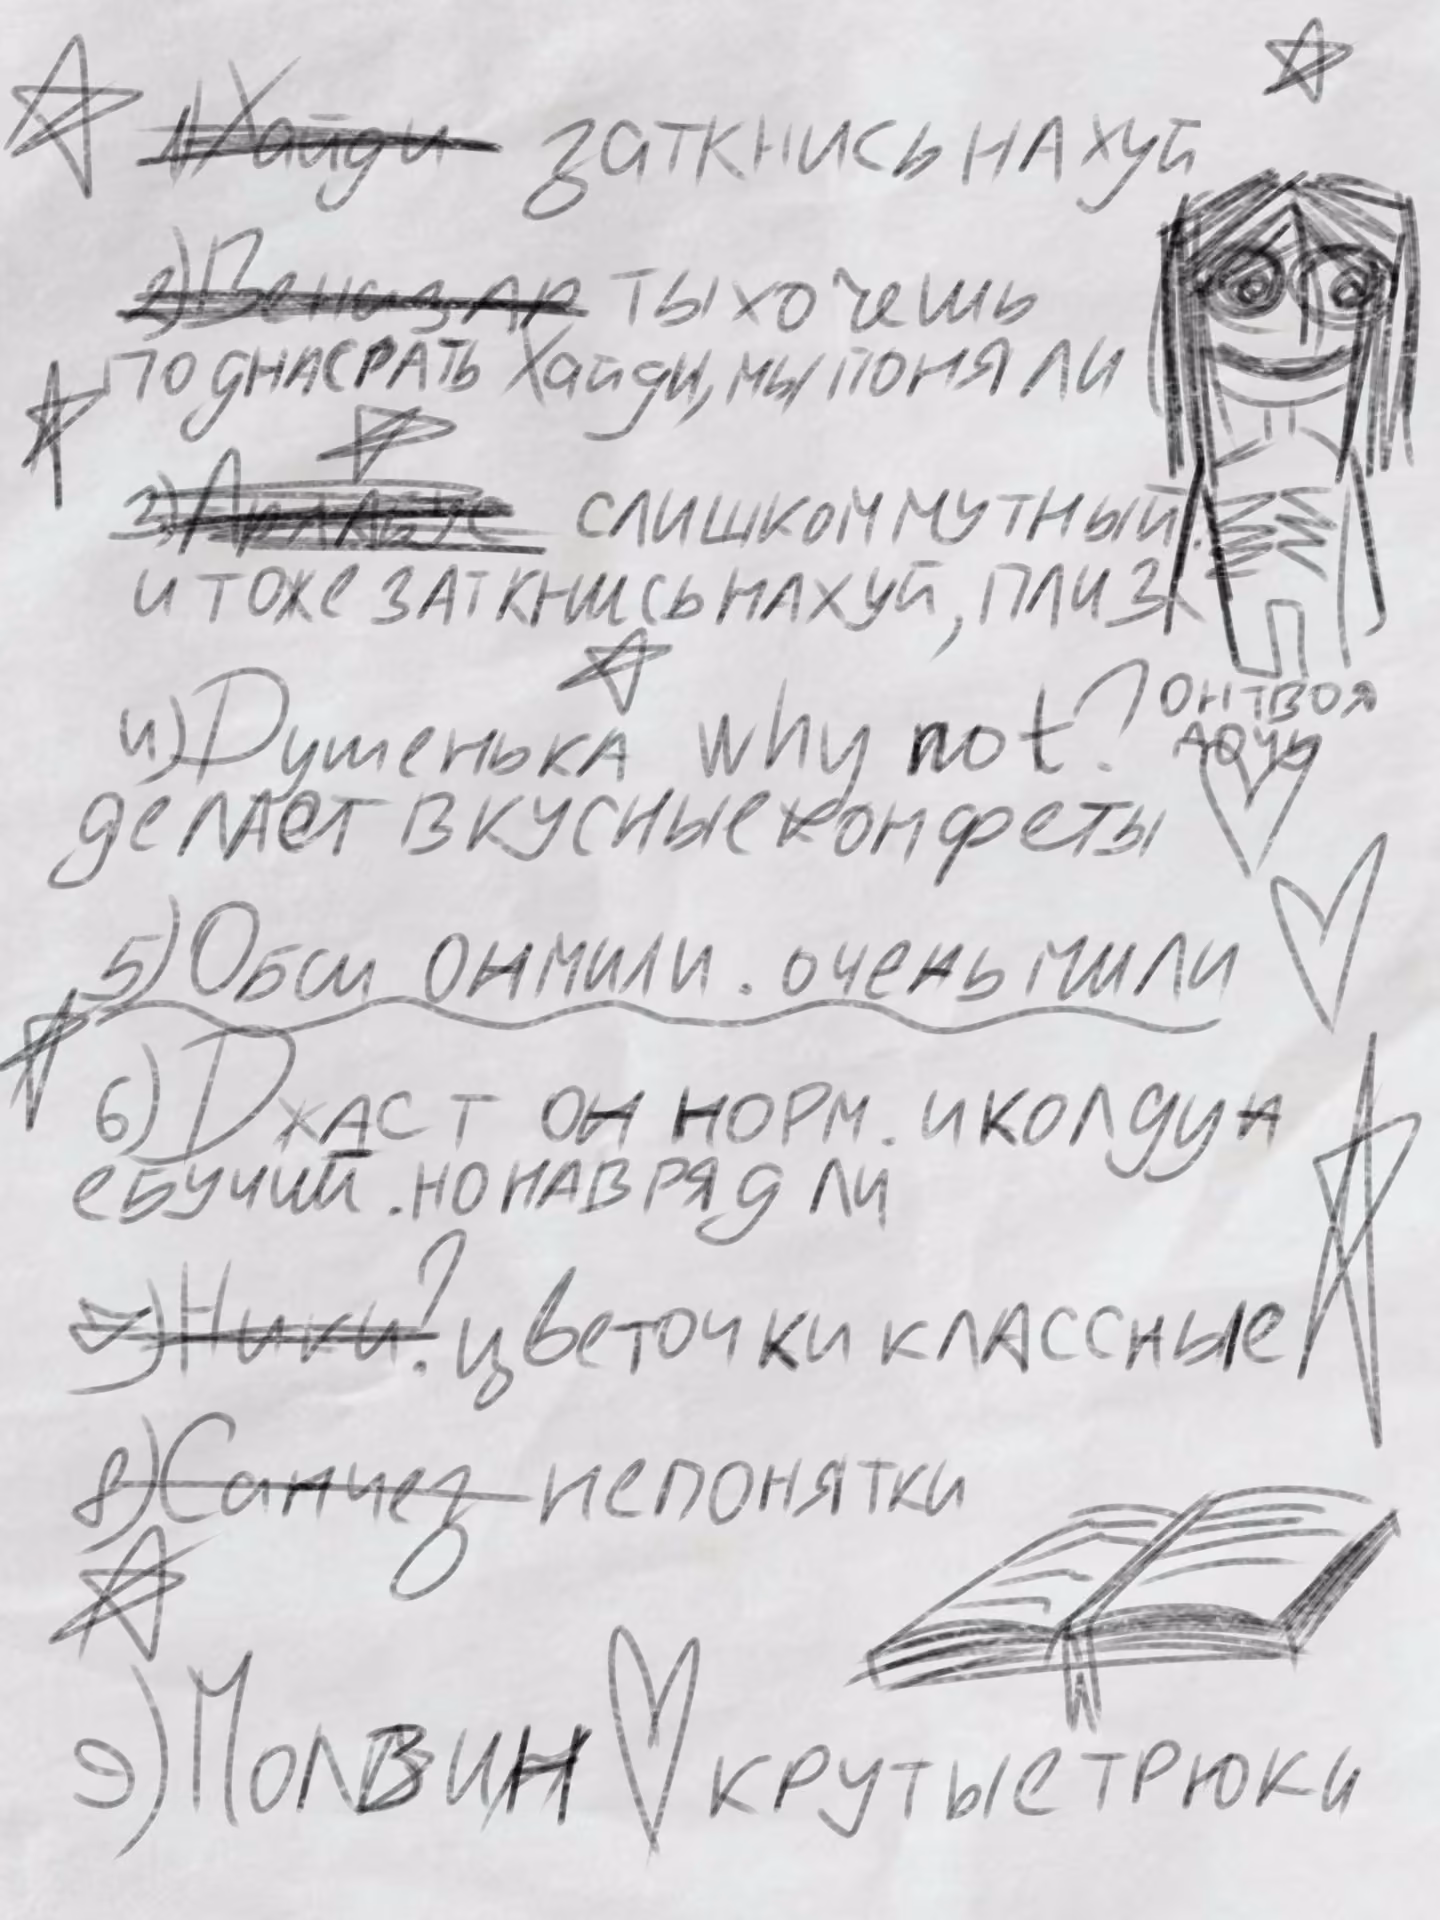 1) Хайди заткнись нахуй
2) Венизар ты хочешь
поднасрать Хайди, мы поняли
3) слишком мутный.
и тоже заткнись нахуй, плиз
4) Душенька why not?
делает вкусные конфеты
он твоя
дочь
5) Обси он мили. очень мили
6) Джаст он норм. и колдун
ебучий. но наврядли
7) Ники? цветочки классные
8) Санчез непонятки
9) Молвин крутые трюки